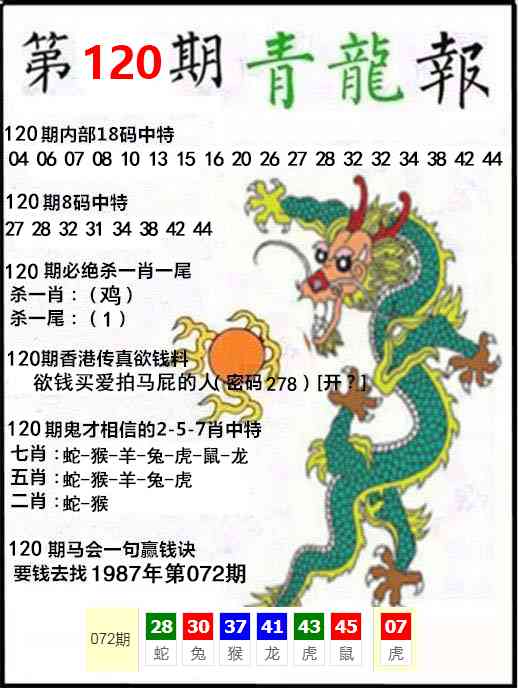 第120期青龍報
120期内部18码中特
04 06 07 08 10 13 15 16 20 26 27 28 32 32 34 38 42 44
120期8码中特
27 28 32 31 34 38 42 44
120 期必绝杀一肖一尾
杀一肖：（鸡）
杀一尾：（1）
120期香港传真欲钱料
欲钱买爱拍马屁的人（密码278）[开？]
120期鬼才相信的2-5-7肖中特
七肖：蛇-猴-羊-兔-虎-鼠-龙
五肖：蛇-猴-羊-兔-虎
二肖：蛇-猴
120 期马会一句赢钱诀
要钱去找1987年第072期
072期 28 30 37 41 43 45 07
蛇 兔 猴 龙 虎 鼠 虎